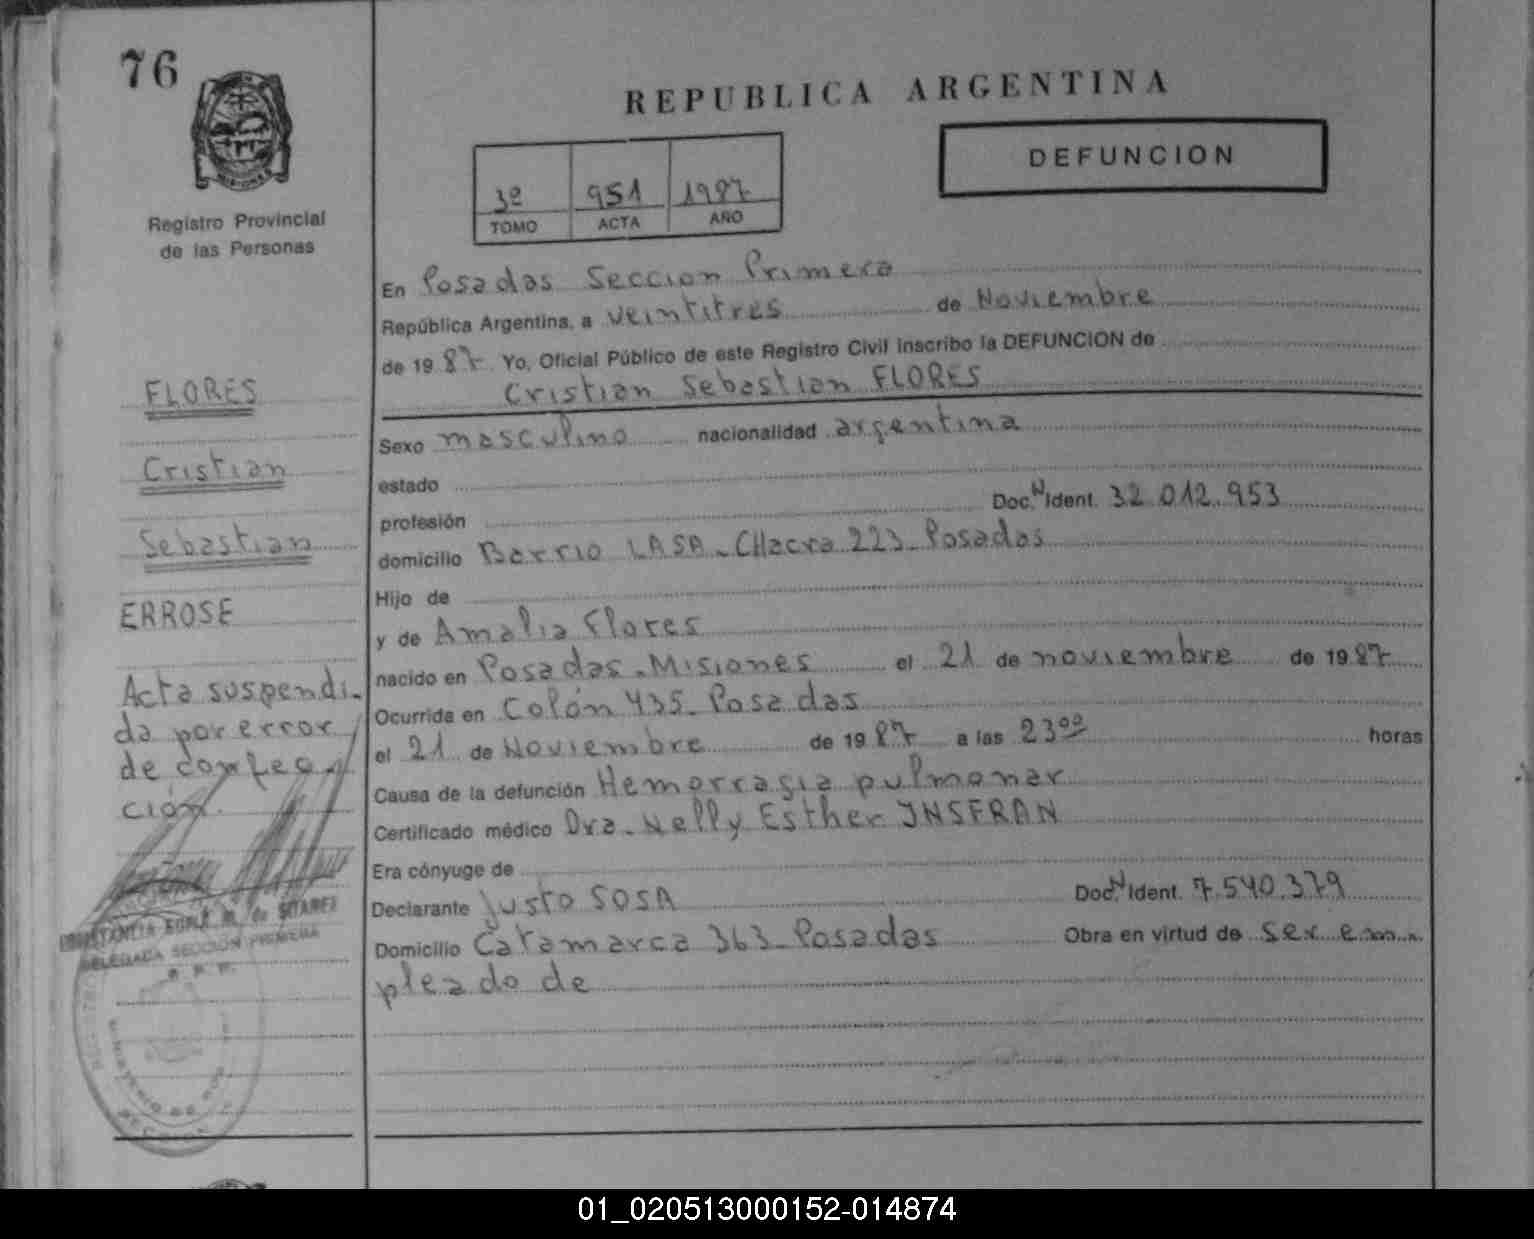 76
REPUBLICA ARGENTINA
DEFUNCION
3º 951 1987
TOMO ACTA AÑO
MISIONES
Registro Provincial
de las Personas
En Posadas Seccion Primera
República Argentina, a veintitres de Noviembre
de 1987 Yo, Oficial Público de este Registro Civil inscribo la DEFUNCION de
Cristian Sebastian FLORES
FLORES
Cristian
Sebastian
ERROSE
Acta suspendi-
da por error
de confec-
ción.
DELEGADA SECCION PRIMERA
Sexo masculino nacionalidad argentina
estado
profesión Doc. N Ident. 32.012.953
domicilio Barrio LASA - CHacra 223 - Posadas
Hijo de
y de Amalia Flores
nacido en Posadas - Misiones el 21 de noviembre de 1987
Ocurrida en Colón 435 - Posadas
el 21 de Noviembre de 1987 a las 23ºº horas
Causa de la defunción Hemorragia pulmonar
Certificado médico Dra. Nelly Esther INSFRAN
Era cónyuge de
Declarante Justo SOSA Doc. N Ident. 7.540.379
Domicilio Catamarca 363 - Posadas Obra en virtud de ser em-
pleado de
01_020513000152-014874